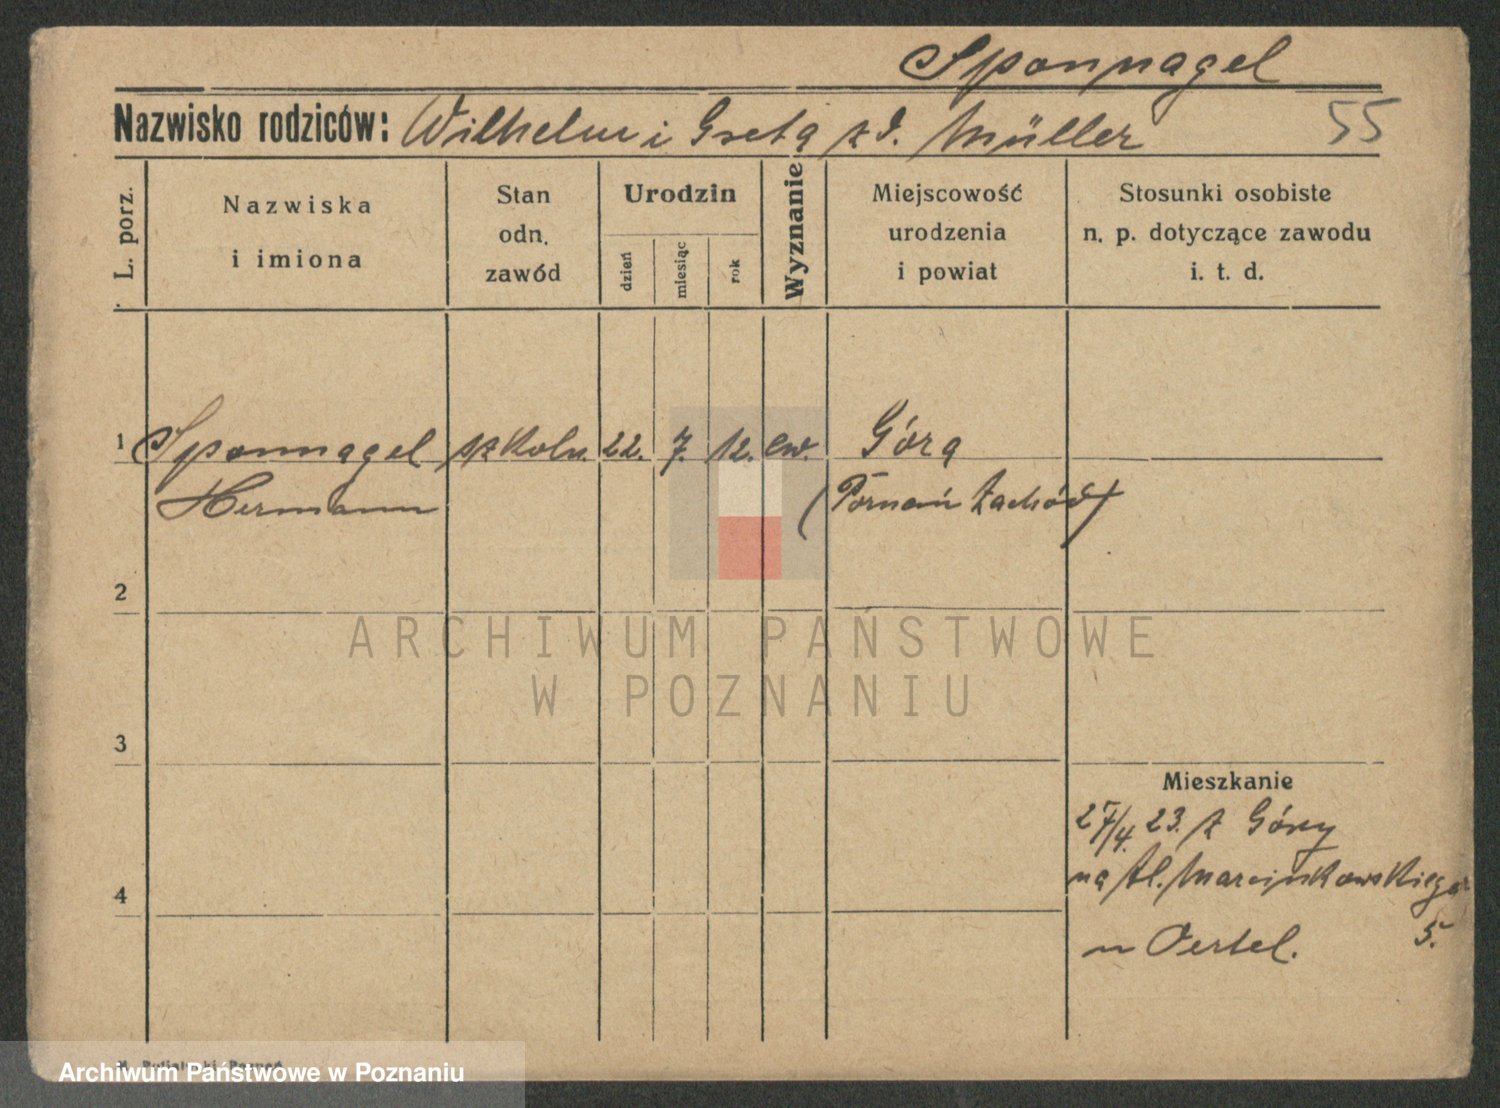 Sponnagel
Nazwisko rodziców: Wilhelm i Greta z d. Müller 55
L. porz.
Nazwiska
i imiona
Stan
odn.
zawód
Urodzin
dzień
miesiąc
rok
Wyznanie
Miejscowość
urodzenia
i powiat
Stosunki osobiste
n. p. dotyczące zawodu
i. t. d.
1 Sponnagel szkoln. 22. 7. 12. ew. Góra
Hermann (Poznań Zachód)
2
3
4
Mieszkanie
27/4. 23. z Góry
na Al. Marcinkowskiego
5.
u Oertel.
ARCHIWUM PAŃSTWOWE
W POZNANIU
Archiwum Państwowe w Poznaniu